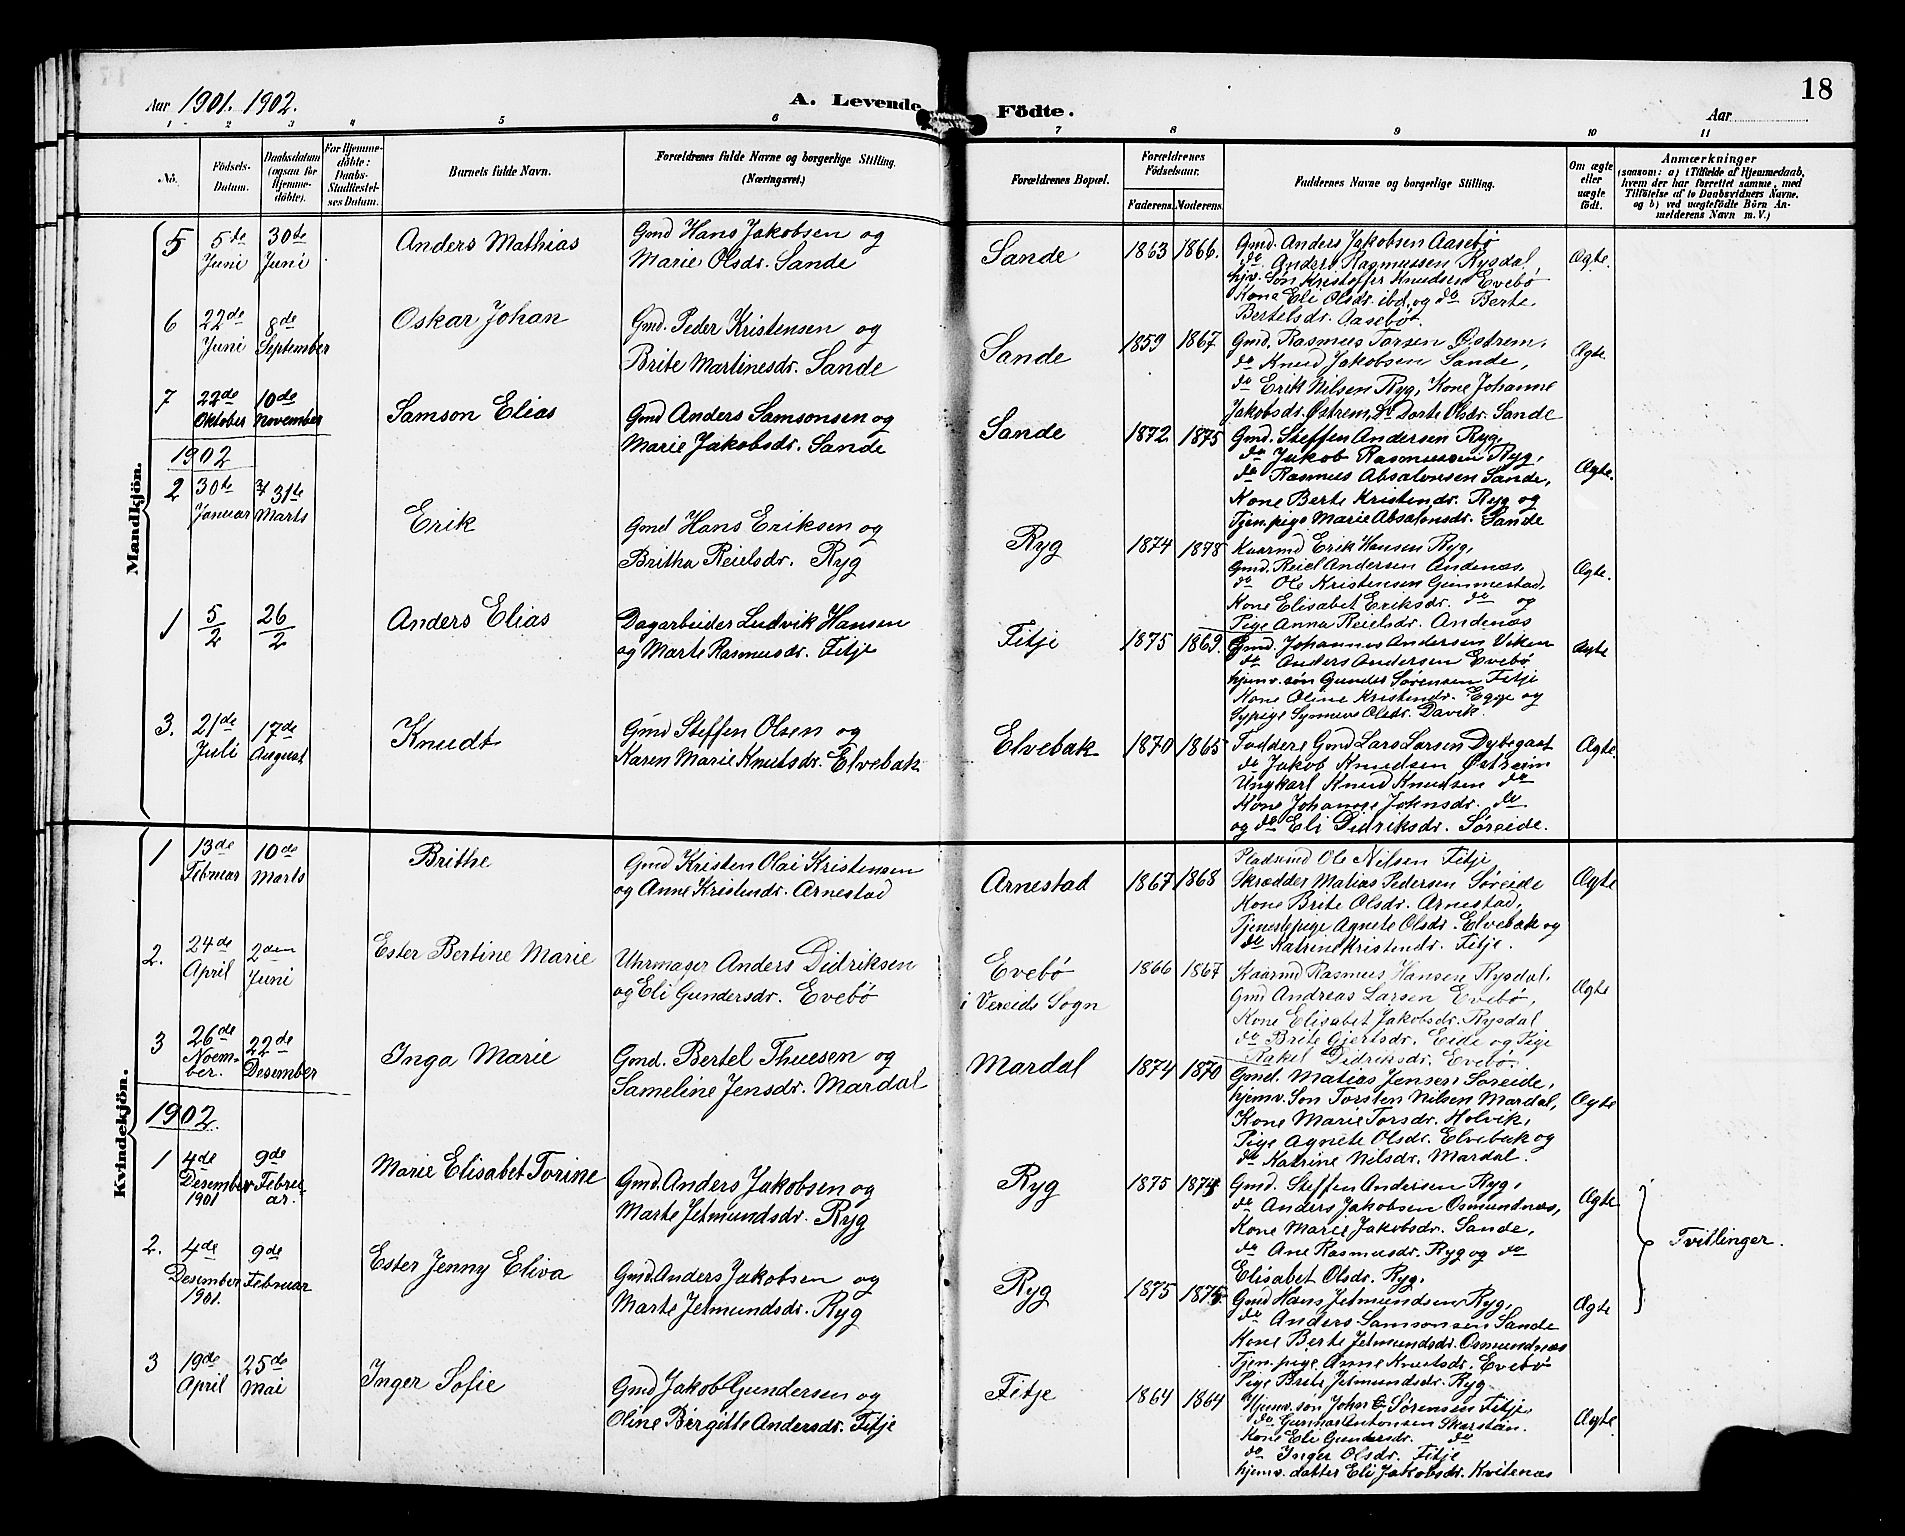 Aar 1901. 1902.
A. Levende Födte.
Aar
18
1 2 3 4 5 6 7 8 9 10 11
No.
Födsels-Datum.
Daabsdatum (ogsaa for Hjemme-döbte).
For Hjemme-döbte: Daabs-Stadfæstel-ses Datum.
Barnets fulde Navn.
Forældrenes fulde Navne og borgerlige Stilling. (Næringsvei.)
Forældrenes Bopæl.
Forældrenes Födselsaar.
Faderens. Moderens.
Faddernes Navne og borgerlige Stilling.
Om ægte eller uægte födt.
Anmærkninger
(saasom: a) i Tilfælde af Hjemmedaab, hvem der har forrettet samme, med Tilföielse af to Daabsvidners Navne, og b) ved uægtefödte Börn An-melderens Navn m. V.)
Mandkjön.
5 5de Juni 30te Juni
Anders Mathias
Gmd Hans Jakobsen og
Marie Olsdr. Sande
Sande 1863 1866.
Gmd. Anders Jakobsen Aasebø
do Anders Rasmussen Rysdal,
hjv. Søn Kristoffer Knudsen Evebø
Kone Eli Olsdr. ibd. og do Berte
Bertelsdr. Aasebø.
Ægte.
6 22de Juni 8de September
Oskar Johan
Gmd. Peder Kristensen og
Brite Martinesdr. Sande
Sande 1859 1867
Gmd. Rasmus Torsen Østrem,
do Knud Jakobsen Sande,
do Erik Nilsen Ryg, Kone Johanne
Jakobsdr. Østrem, do Dorte Olsdr. Sande
Ægte
7 22de Oktober 10de November
Samson Elias
Gmd Anders Samsonsen og
Marie Jakobsdr. Sande
Sande 1872 1875
Gmd. Steffen Andersen Ryg,
do Jakob Rasmussen Ryg,
do Rasmus Absalonsen Sande,
Kone Berte Kristendr. Ryg og
Tjen.pige Marie Absalonsdr. Sande
Ægte.
1902
2 30te Januar 31te Marts
Erik
Gmd Hans Eriksen og
Britha Reielsdr. Ryg
Ryg 1874 1878
Kaarmd Erik Hansen Ryg,
Gmd. Reiel Andersen Andenæs,
do Ole Kristensen Gimmestad,
Kone Elisabet Eriksdr. do og
Pige Anna Reielsdr. Andenæs
Ægte.
1 5/2 26/2
Anders Elias
Dagarbeider Ludvik Hansen
og Marte Rasmusdr. Fitje
Fitje 1875 1869.
Gmd. Johannes Andersen Viken
do Anders Andersen Evebø
hjemv. søn Gunder Sørensen Fitje
Kone Oline Kristendr. Egge og
Sypige Synneve Olsdr. Davik.
Ægte
3. 21de Juli 17de August
Knudt
Gmd Steffen Olsen og
Karen Marie Knutsdr. Elvebak
Elvebak 1870 1865
Faddere Gmd Lars Larsen Dybegaat
do Jakob Knudsen Østheim
Ungkarl Knud Knudsen do
Kone Johanne Johnsdr. do
og do Eli Didriksdr. Søreide.
Ægte.
Kvindekjön.
1 13de Februar 10de Marts
Brithe
Gmd Kristen Olai Kristensen
og Anne Kristendr. Arnestad
Arnestad 1867 1868
Pladsmd Ole Nilsen Fitje,
Skrædder Matias Pedersen Søreide
Kone Brite Olsdr. Arnestad,
Tjenestepige Agnete Olsdr. Elvebak og
do Katrine Kristendr. Fitje.
Ægte
2. 24de April 2den Juni
Ester Bertine Marie
Uhrmager Anders Didriksen
og Eli Gundersdr. Evebø
Evebø
i Vereids Sogn 1866 1867
Kaarmd Rasmus Hansen Rysdal,
Gmd Andreas Larsen Evebø,
Kone Elisabet Jakobsdr. Rysdal
do Brite Gjertsdr. Eide og Pige
Rakel Didriksdr. Evebø.
Ægte
3 26de Noem-ber. 22de Desember
Inga Marie
Gmd. Bertel Thuesen og
Sameline Jensdr. Mardal
Mardal 1874 1870
Gmd. Matias Jensen Søreide,
hjemv. Søn Torsten Nilsen Mardal,
Kone Marie Torsdr. Holvik,
Pige Agnete Olsdr. Elvebak og
do Katrine Nilsdr. Mardal.
Ægte
1902.
1 4de Desember 1901 9de Febru-ar.
Marie Elisabet Torine
Gmd. Anders Jakobsen og
Marte Jetmundsdr. Ryg
Ryg 1875 1874
Gmd. Steffen Andersen Ryg,
do Anders Jakobsen Osmundnæs,
Kone Marie Jakobsdr. Sande,
do Ane Rasmusdr. Ryg og do
Elisabet Olsdr. Ryg.
Ægte
Tvillinger.
2. 4de Desember 1901. 9de Februar
Ester Jenny Eliva
Gmd. Anders Jakobsen og
Marte Jetmundsdr. Ryg
Ryg 1875 1875
Gmd Hans Jetmundsen Ryg,
do Anders Samsonsen Sande
Kone Berte Jetmundsdr. Osmundnæs
Tjen.pige Anne Knutsdr. Evebø
Pige Brite Jetmundsdr. Ryg
Ægte
3 19de April 25de Mai
Inger Sofie
Gmd Jakob Gundersen og
Oline Birgitte Andersdr. Fitje
Fitje 1864 1864
Hjemv. søn John G. Sørensen Fitje,
do Gunnar Antonsen Skarstān.
Kone Eli Gundersdr. do
do Inger Olsdr. Fitje
hjemv. datter Eli Jakobsdr. Kvitenæs
Ægte.